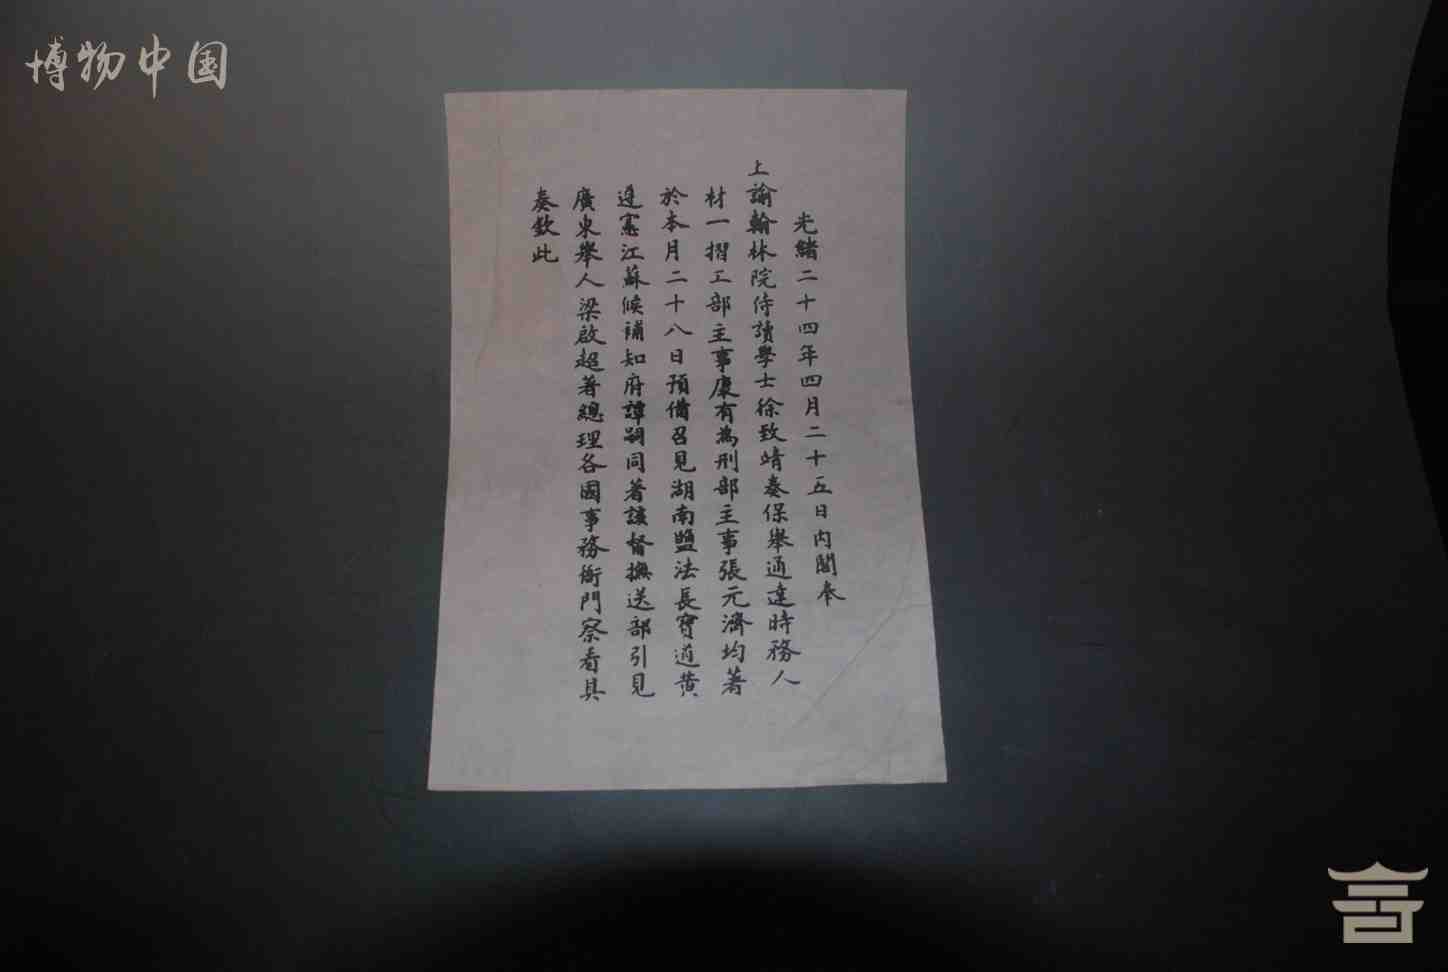 博物中国
光緒二十四年四月二十五日內閣奉
上諭翰林院侍讀學士徐致靖奏保舉通達時務人
材一摺工部主事康有為刑部主事張元濟均著
於本月二十八日預備召見湖南鹽法長寶道黃
遵憲江蘇候補知府譚嗣同著該督撫送部引見
廣東舉人梁啟超著總理各國事務衙門察看具
奏欽此